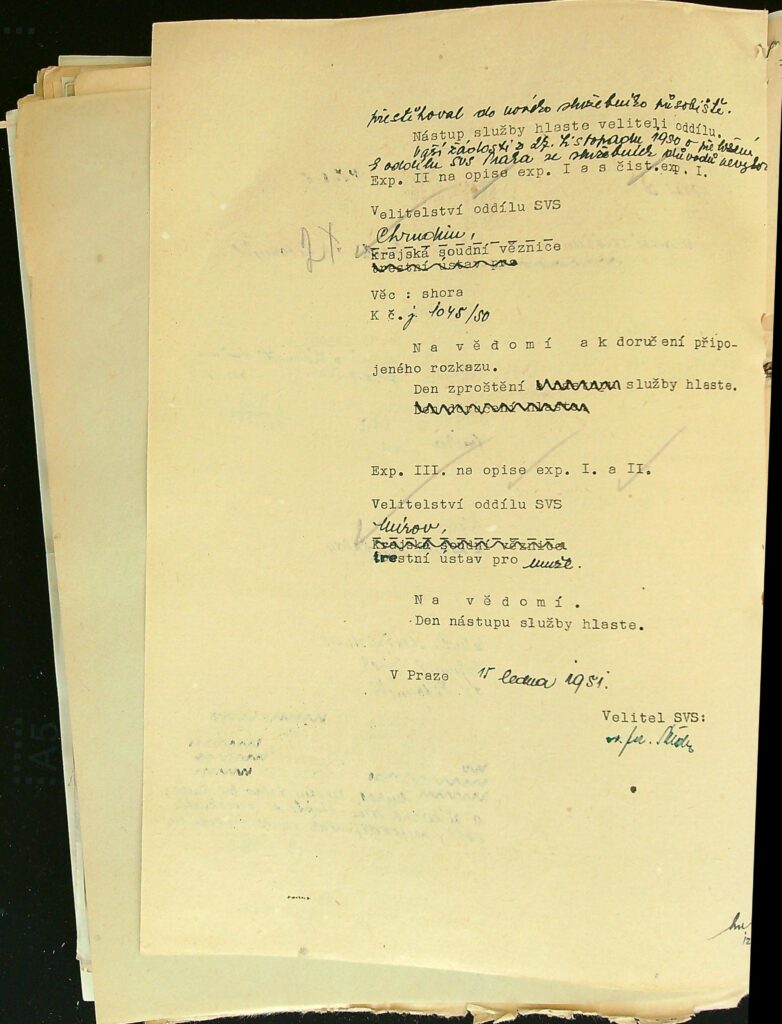 přestěhoval do nového služebního působiště.
Nástup služby hlaste veliteli oddílu.
Vaší žádosti z 27. listopadu 1950 o přeložení
k oddílu SVS Praha ze služebních důvodů nevyhov
Exp. II na opise exp. I a s čist.exp. I.
Velitelství oddílu SVS
Chrudim,
krajská soudní věznice
trestní ústav pro
Věc : shora
K č.j. 1045/50
Na vědomí a k doručení připo-
jeného rozkazu.
Den zproštění služby hlaste.
Den doručení hlaste.
Exp. III. na opise exp. I. a II.
Velitelství oddílu SVS
Mírov,
Krajská soudní věznice
trestní ústav pro muže.
Na vědomí.
Den nástupu služby hlaste.
V Praze 15 ledna 1951.
Velitel SVS: